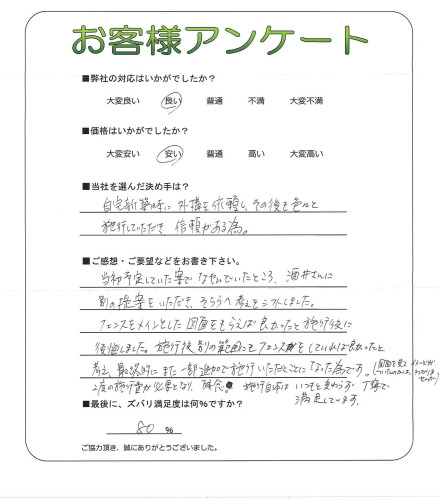 お客様アンケート
■弊社の対応はいかがでしたか？
大変良い 良い 普通 不満 大変不満
■価格はいかがでしたか？
大変安い 安い 普通 高い 大変高い
■当社を選んだ決め手は？
自宅新築時に外構を依頼し、その後も色々と
施行していただき、信頼がある為。
■ご感想・ご要望などをお書き下さい。
当初予定していた案でなやんでいたところ、酒井さんに
別の提案をいただき、そちらへ考えをシフトしました。
フェンスをメインとした図面をもらえば良かったと施行後に
後悔しました。施行後、別の範囲もフェンスをしていれば良かったと
考え、最終的にまた一部追加で施行いただくことになった為です。
(図面を見てイメージが
2度の施行費が必要となり、残念。施行自体はいつもと変わらず丁寧で
満足しています。
■最後に、ズバリ満足度は何%ですか？
80 %
ご協力頂き、誠にありがとうございました。